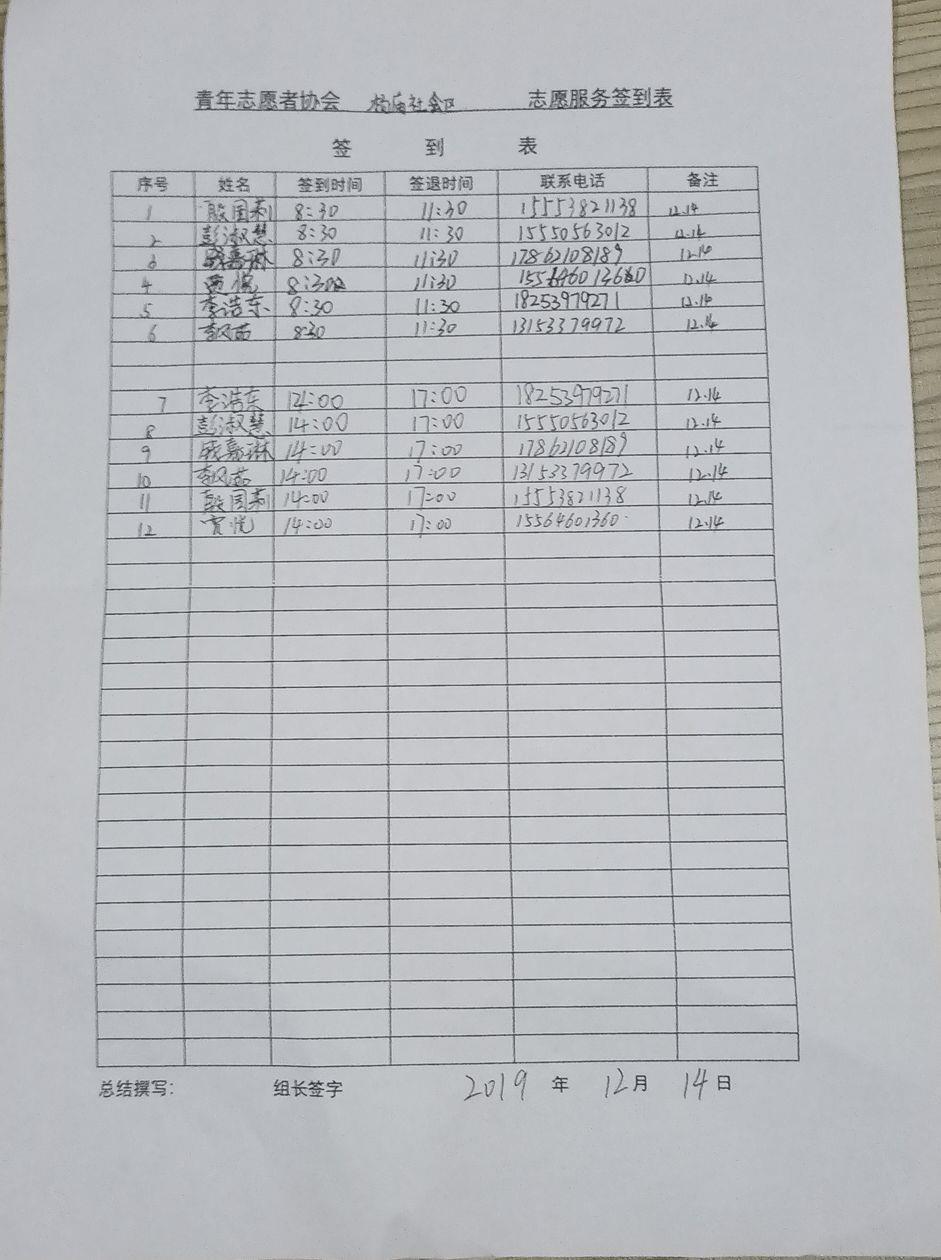 青年志愿者协会 社会区 志愿服务签到表
签 到 表
序号 姓名 签到时间 签退时间 联系电话 备注
1 殷国利 8:30 11:30 15553821138 12.14
2 彭淑慧 8:30 11:30 15550563012 12.14
3 钱嘉琳 8:30 11:30 17862108189 12.14
4 贾悦 8:30 11:30 12.14
5 李浩东 8:30 11:30 18253979271 12.14
6 8:30 11:30 13153379972 12.14
7 李浩东 14:00 17:00 18253979271 12.14
8 彭淑慧 14:00 17:00 15550563012 12.14
9 钱嘉琳 14:00 17:00 17862108189 12.14
10 14:00 17:00 13153379972 12.14
11 殷国利 14:00 17:00 15553821138 12.14
12 贾悦 14:00 17:00 15564601360 12.14
总结撰写: 组长签字 2019 年 12月 14日